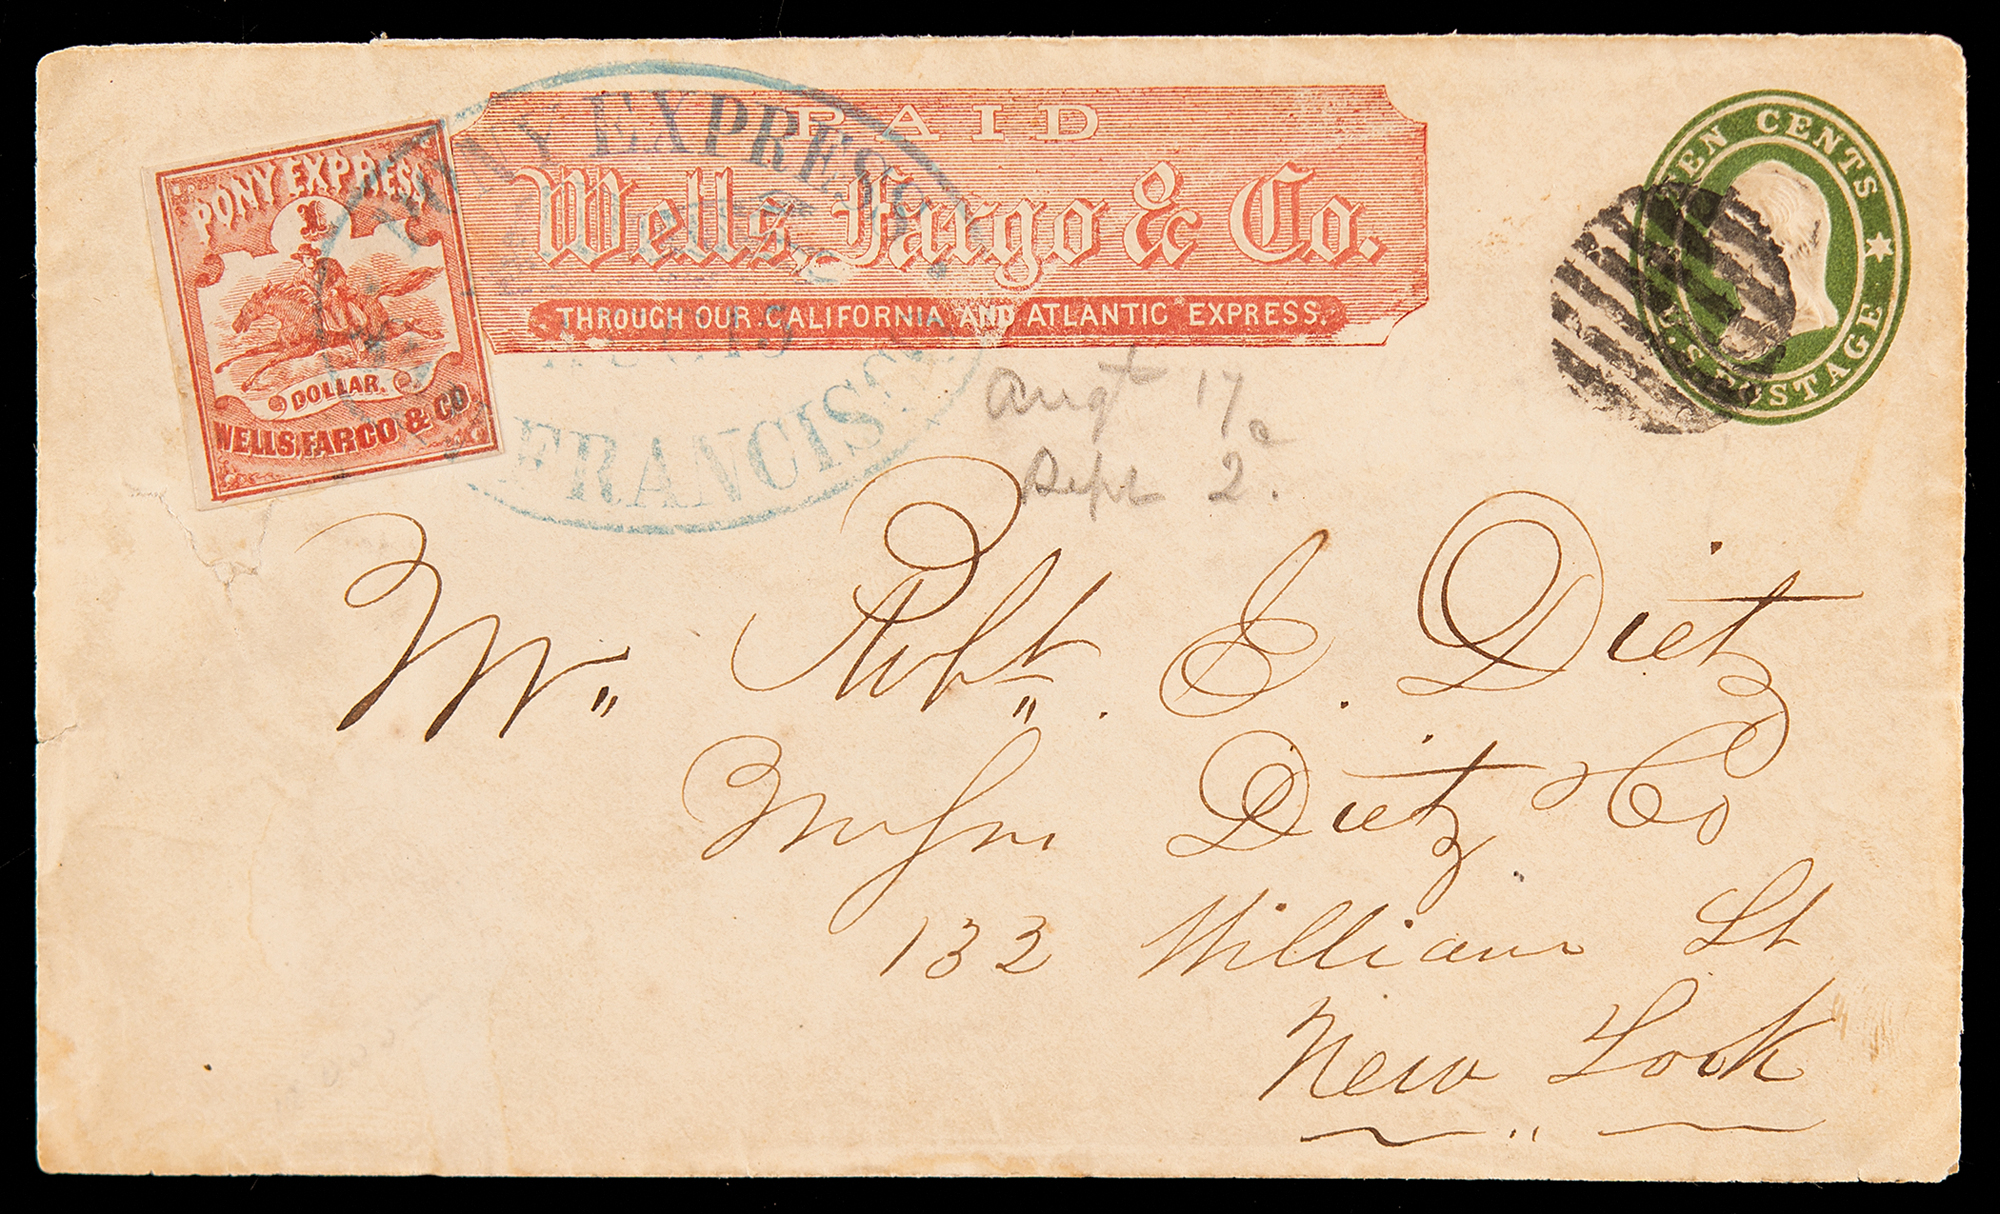 PONY EXPRESS
1
DOLLAR.
WELLS, FARGO & CO.
PAID
Wells, Fargo & Co.
THROUGH OUR CALIFORNIA AND ATLANTIC EXPRESS.
PONY EXPRESS
19
FRANCISCO
TEN CENTS
U.S. POSTAGE
Augt 17
Sept 2.
Mr. Robt. E. Dietz
Dietz & Co
132 William St
New York